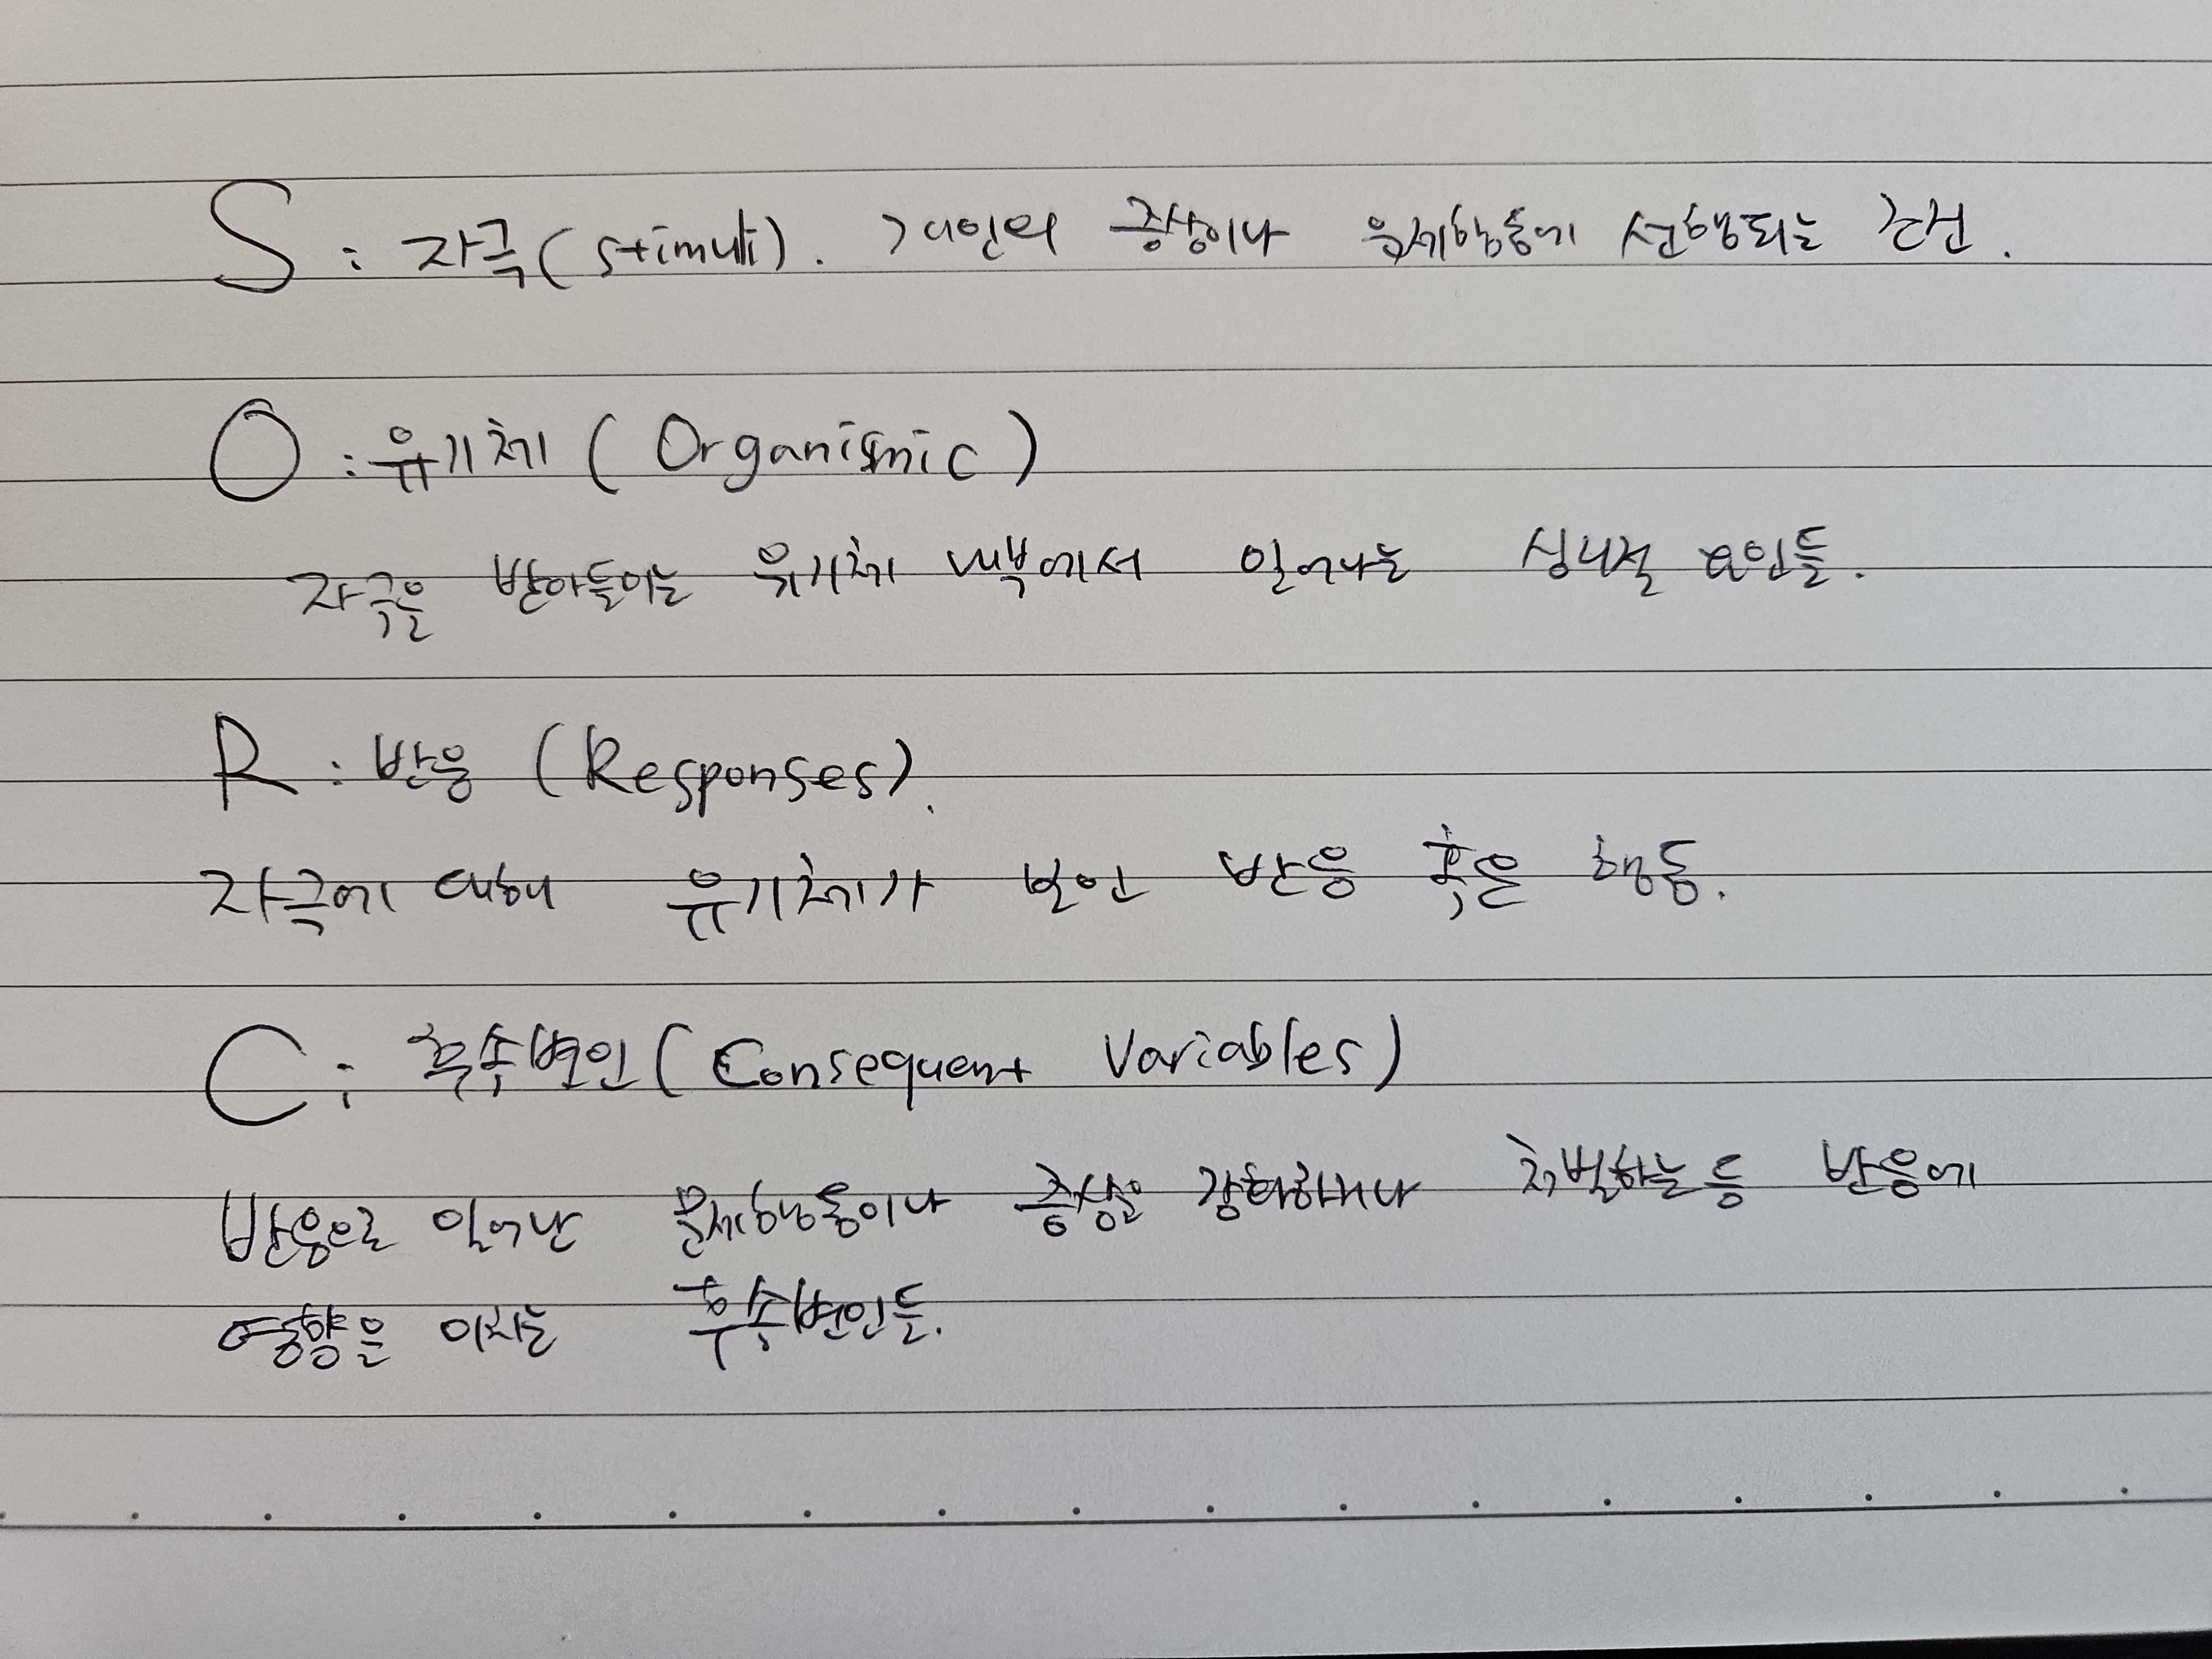 S : 자극(stimuli). 개인의 증상이나 문제행동에 선행되는 조건.
O : 유기체 (Organismic)
자극을 받아들이는 유기체 내부에서 일어나는 심리적 요인들.
R : 반응 (Responses).
자극에 대해 유기체가 보인 반응 혹은 행동.
C : 후속변인 (Consequent Variables)
반응으로 일어난 문제행동이나 증상을 강화하거나 처벌하는 등 반응에
영향을 미치는 후속변인들.